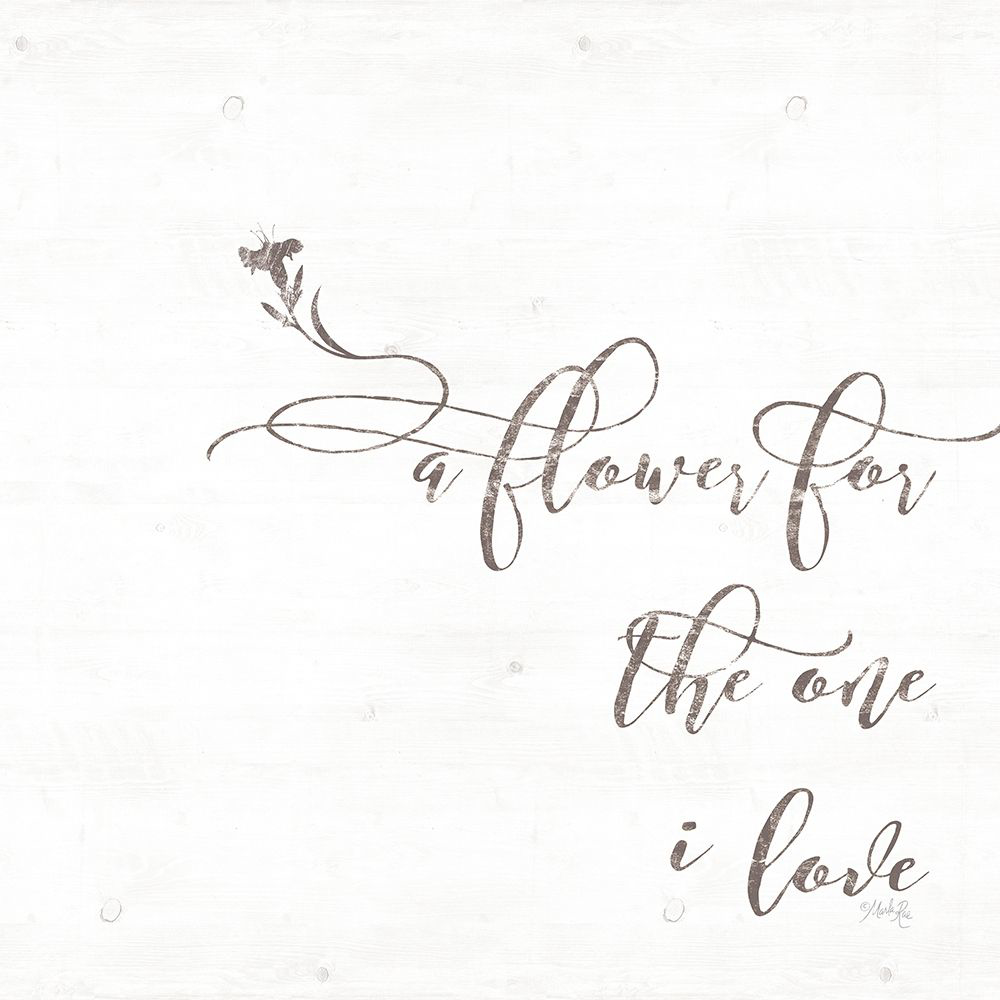 a flower for
the one
i love
©Marla Rae